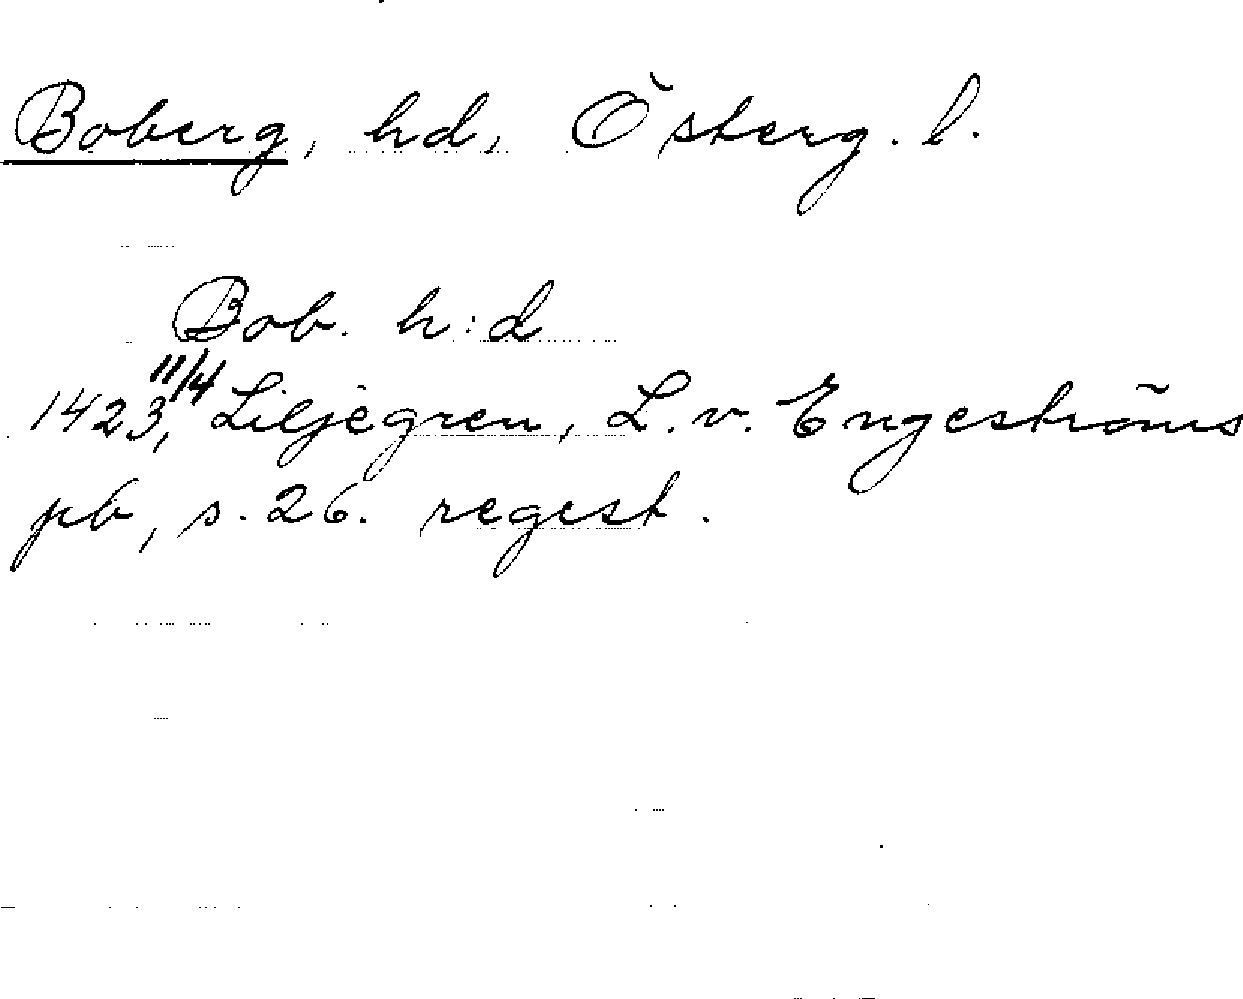 Boberg, hd, Österg. l.
Bob. h:d
1423, 11/4 Liljegren, L. v. Engeströms
pb, s. 26. regest.